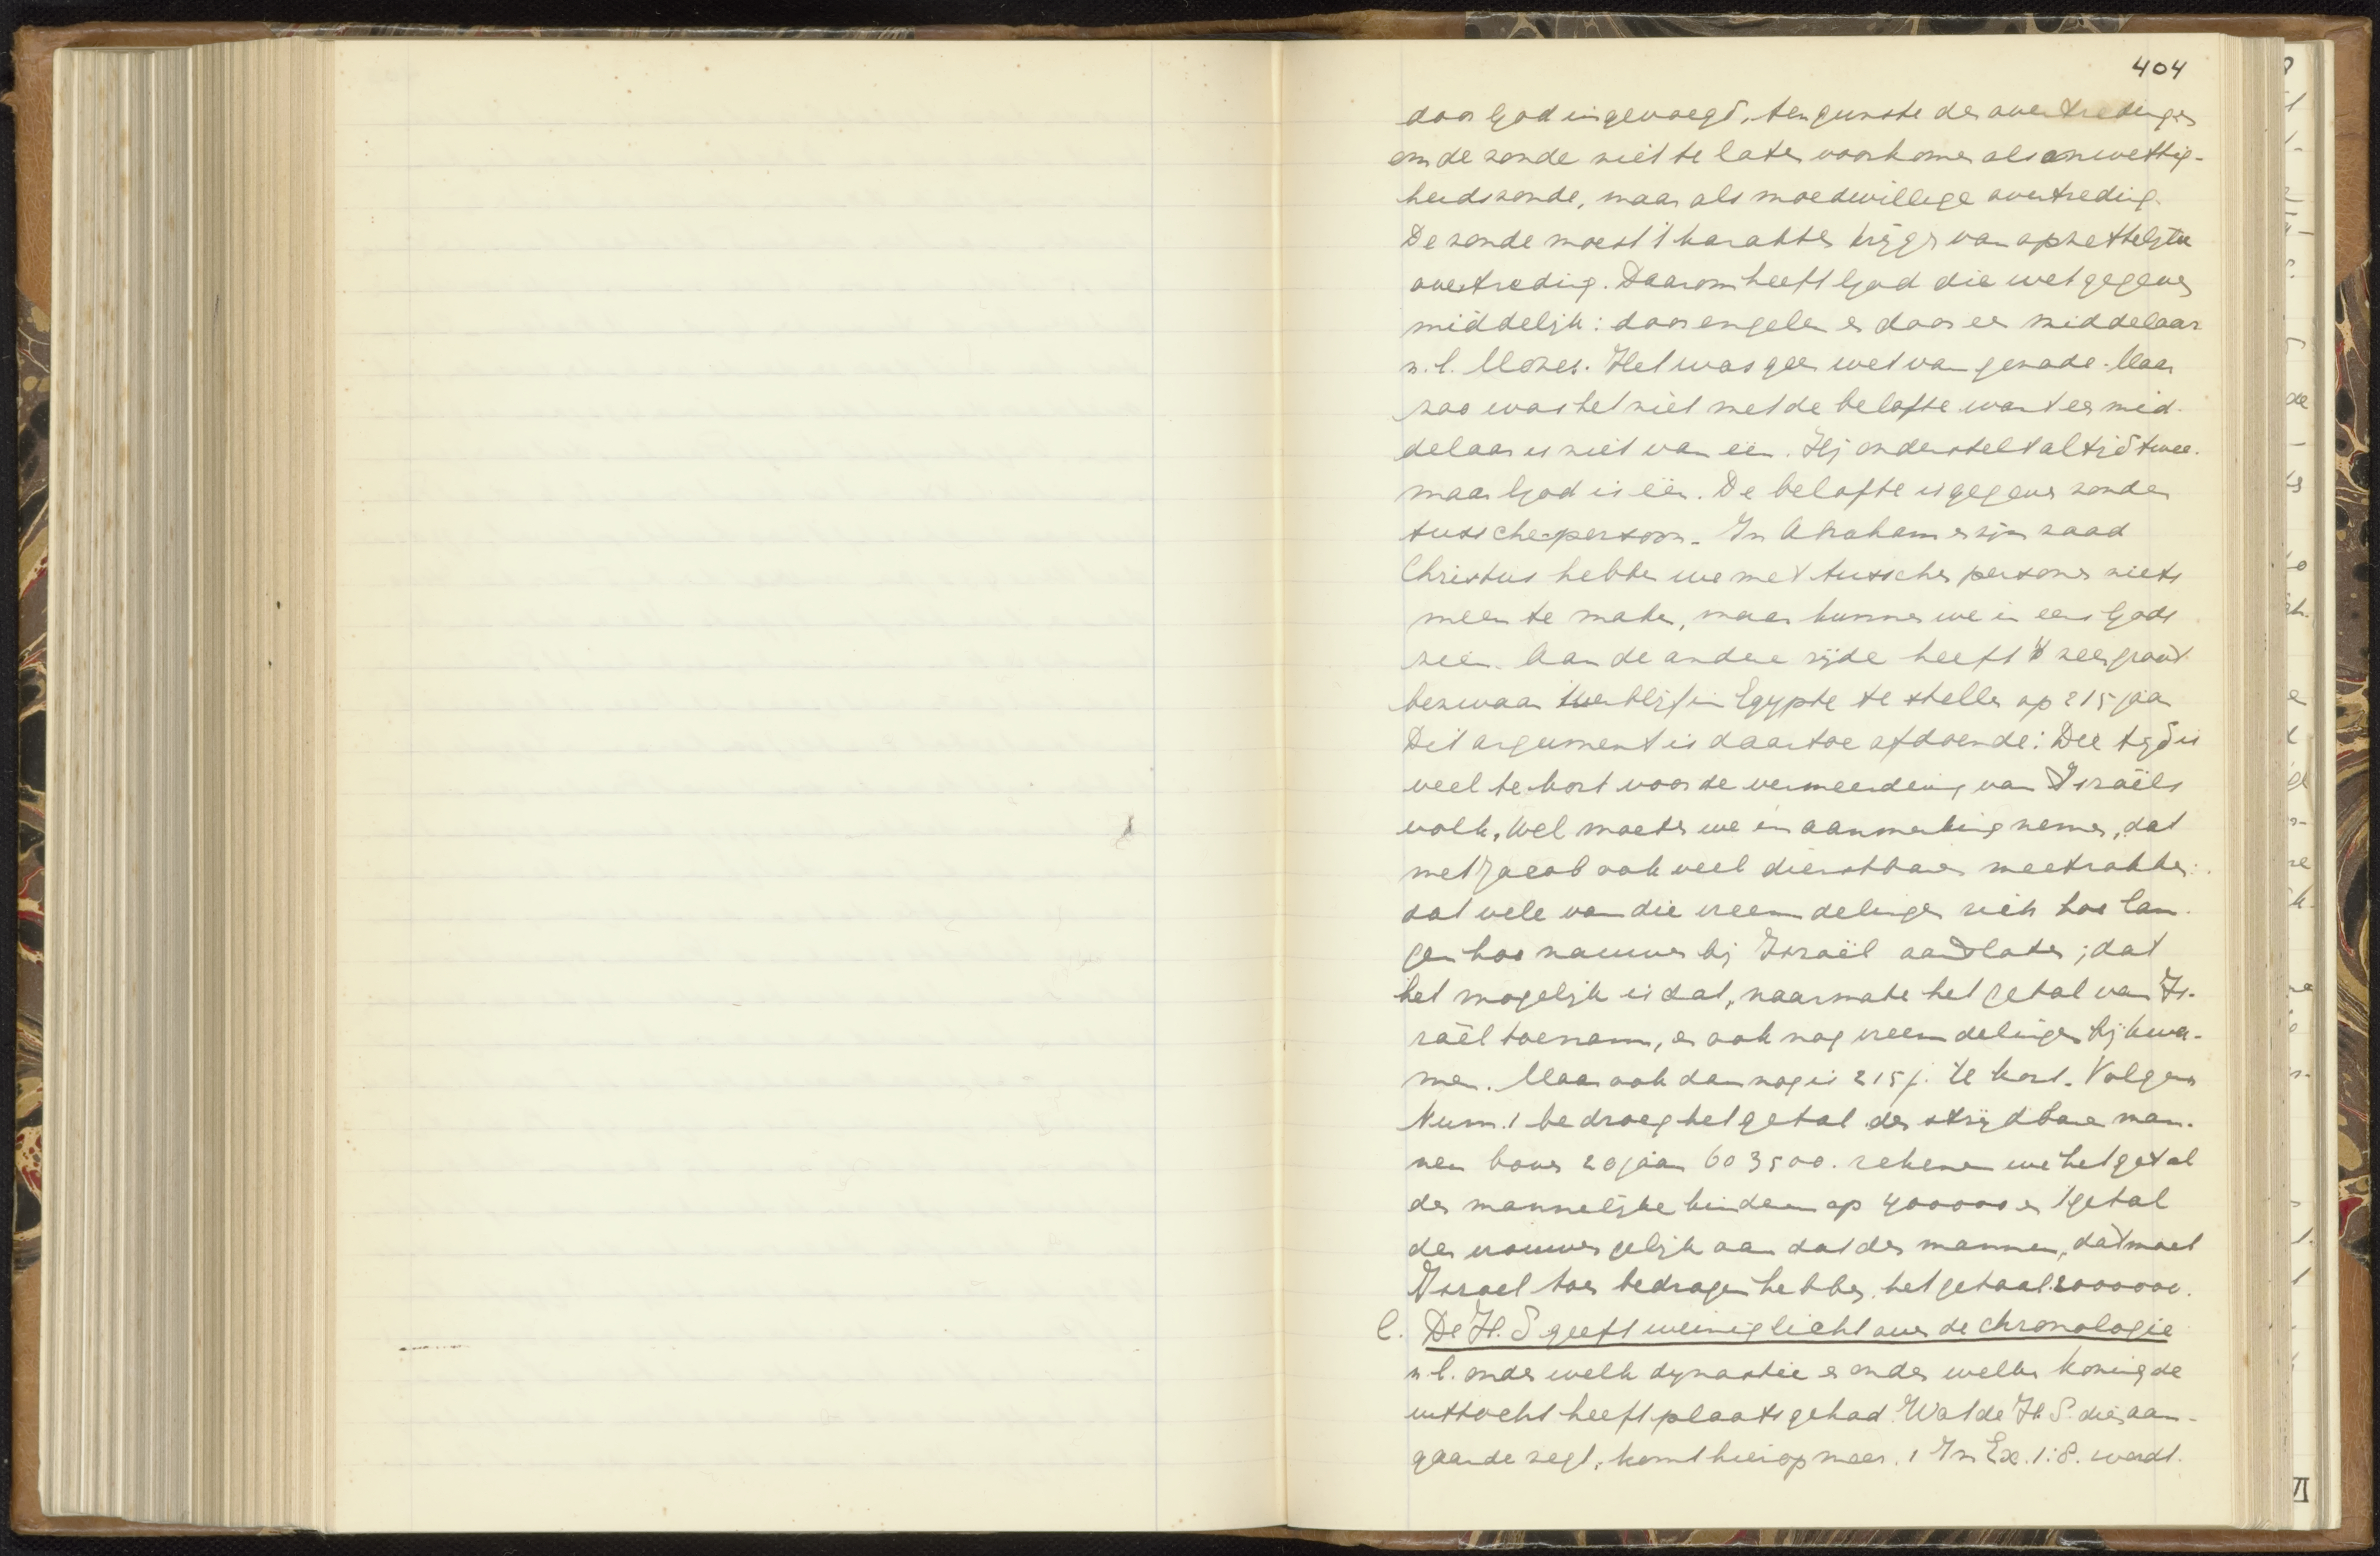 404
door God ingevoegd, ten gunste der overtredingen
om de zonde niet te laten voorkomen als onwettig-
heidszonde, maar als moedwillige overtreding.
De zonde moest 't karakter krijgen van opzettelijke
overtreding. Daarom heeft God die wet gegeven
middelijk: door engelen en door een middelaar
n.l. Mozes. Het was geen wet van genade. Maar
zoo was het niet met de belofte want een mid-
delaar is niet van één. Hij onderstelt altijd twee.
maar God is één. De belofte is gegeven zonder
tusschenpersoon. In Abraham en zijn zaad
Christus hebben we met tusschen personen niets
meer te maken, maar kunnen we in eens Gods
zien. Aan de andere zijde heeft 't zeer groot
bezwaar 't verblijf in Egypte te stellen op 215 jaar
Dit argument is daartoe afdoende: Die tijd is
veel te kort voor de vermeerdering van Israëls
volk. Wel moeten we in aanmerking nemen, dat
met Jacob ook veel dienstbaren meetrokken:
dat vele van die vreemdelingen zich hoe lan-
ger hoe nauwer bij Israël aansloten; dat
het mogelijk is dat, naarmate het getal van Is-
raël toenam, er ook nog vreemdelingen bij kwa-
men. Maar ook dan nog is 215 j. te kort. Volgens
Num. 1 bedroeg het getal der strijdbare man-
nen boven 20 jaar 603500. rekenen we het getal
der mannelijke kinderen op 400000 en 't getal
der vrouwen gelijk aan dat der mannen, dat moet
Israel toen bedragen hebben het getaal 2000000.
C. De H. S geeft weinig licht over de chronologie
n.l. onder welk dynastie en onder welken koning de
uittocht heeft plaats gehad. Wat de H. S. dies aan-
gaande zegt, komt hierop neer. 1 In Ex. 1:8. wordt
VI